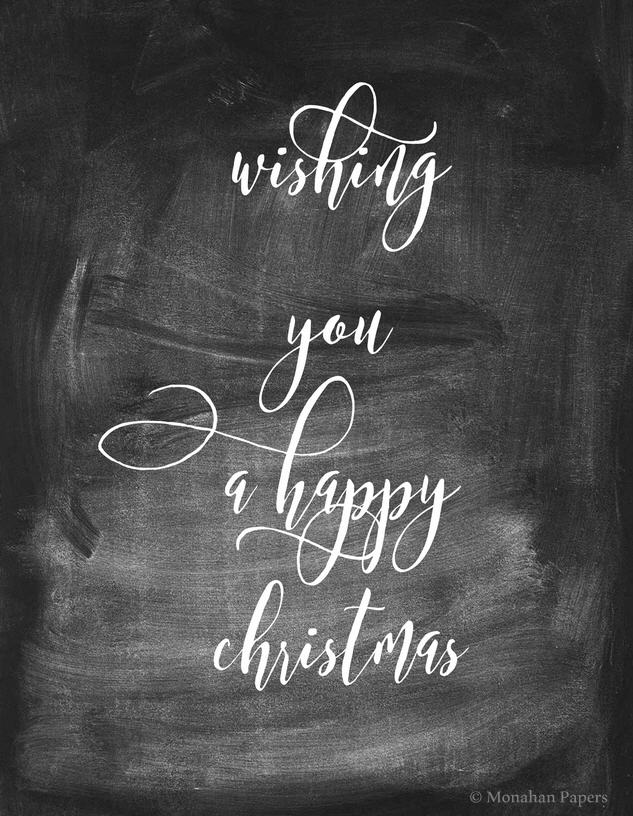 wishing
you
a happy
christmas
© Monahan Papers